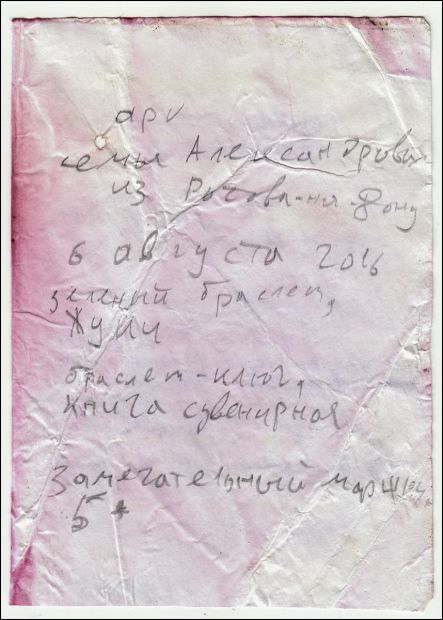 ари
семья Александровых
из Ростова-на-Дону
6 августа 2016
зеленый браслет,
Жуки
браслет-ключ,
книга сувенирная
Замечательный маршрут
5*